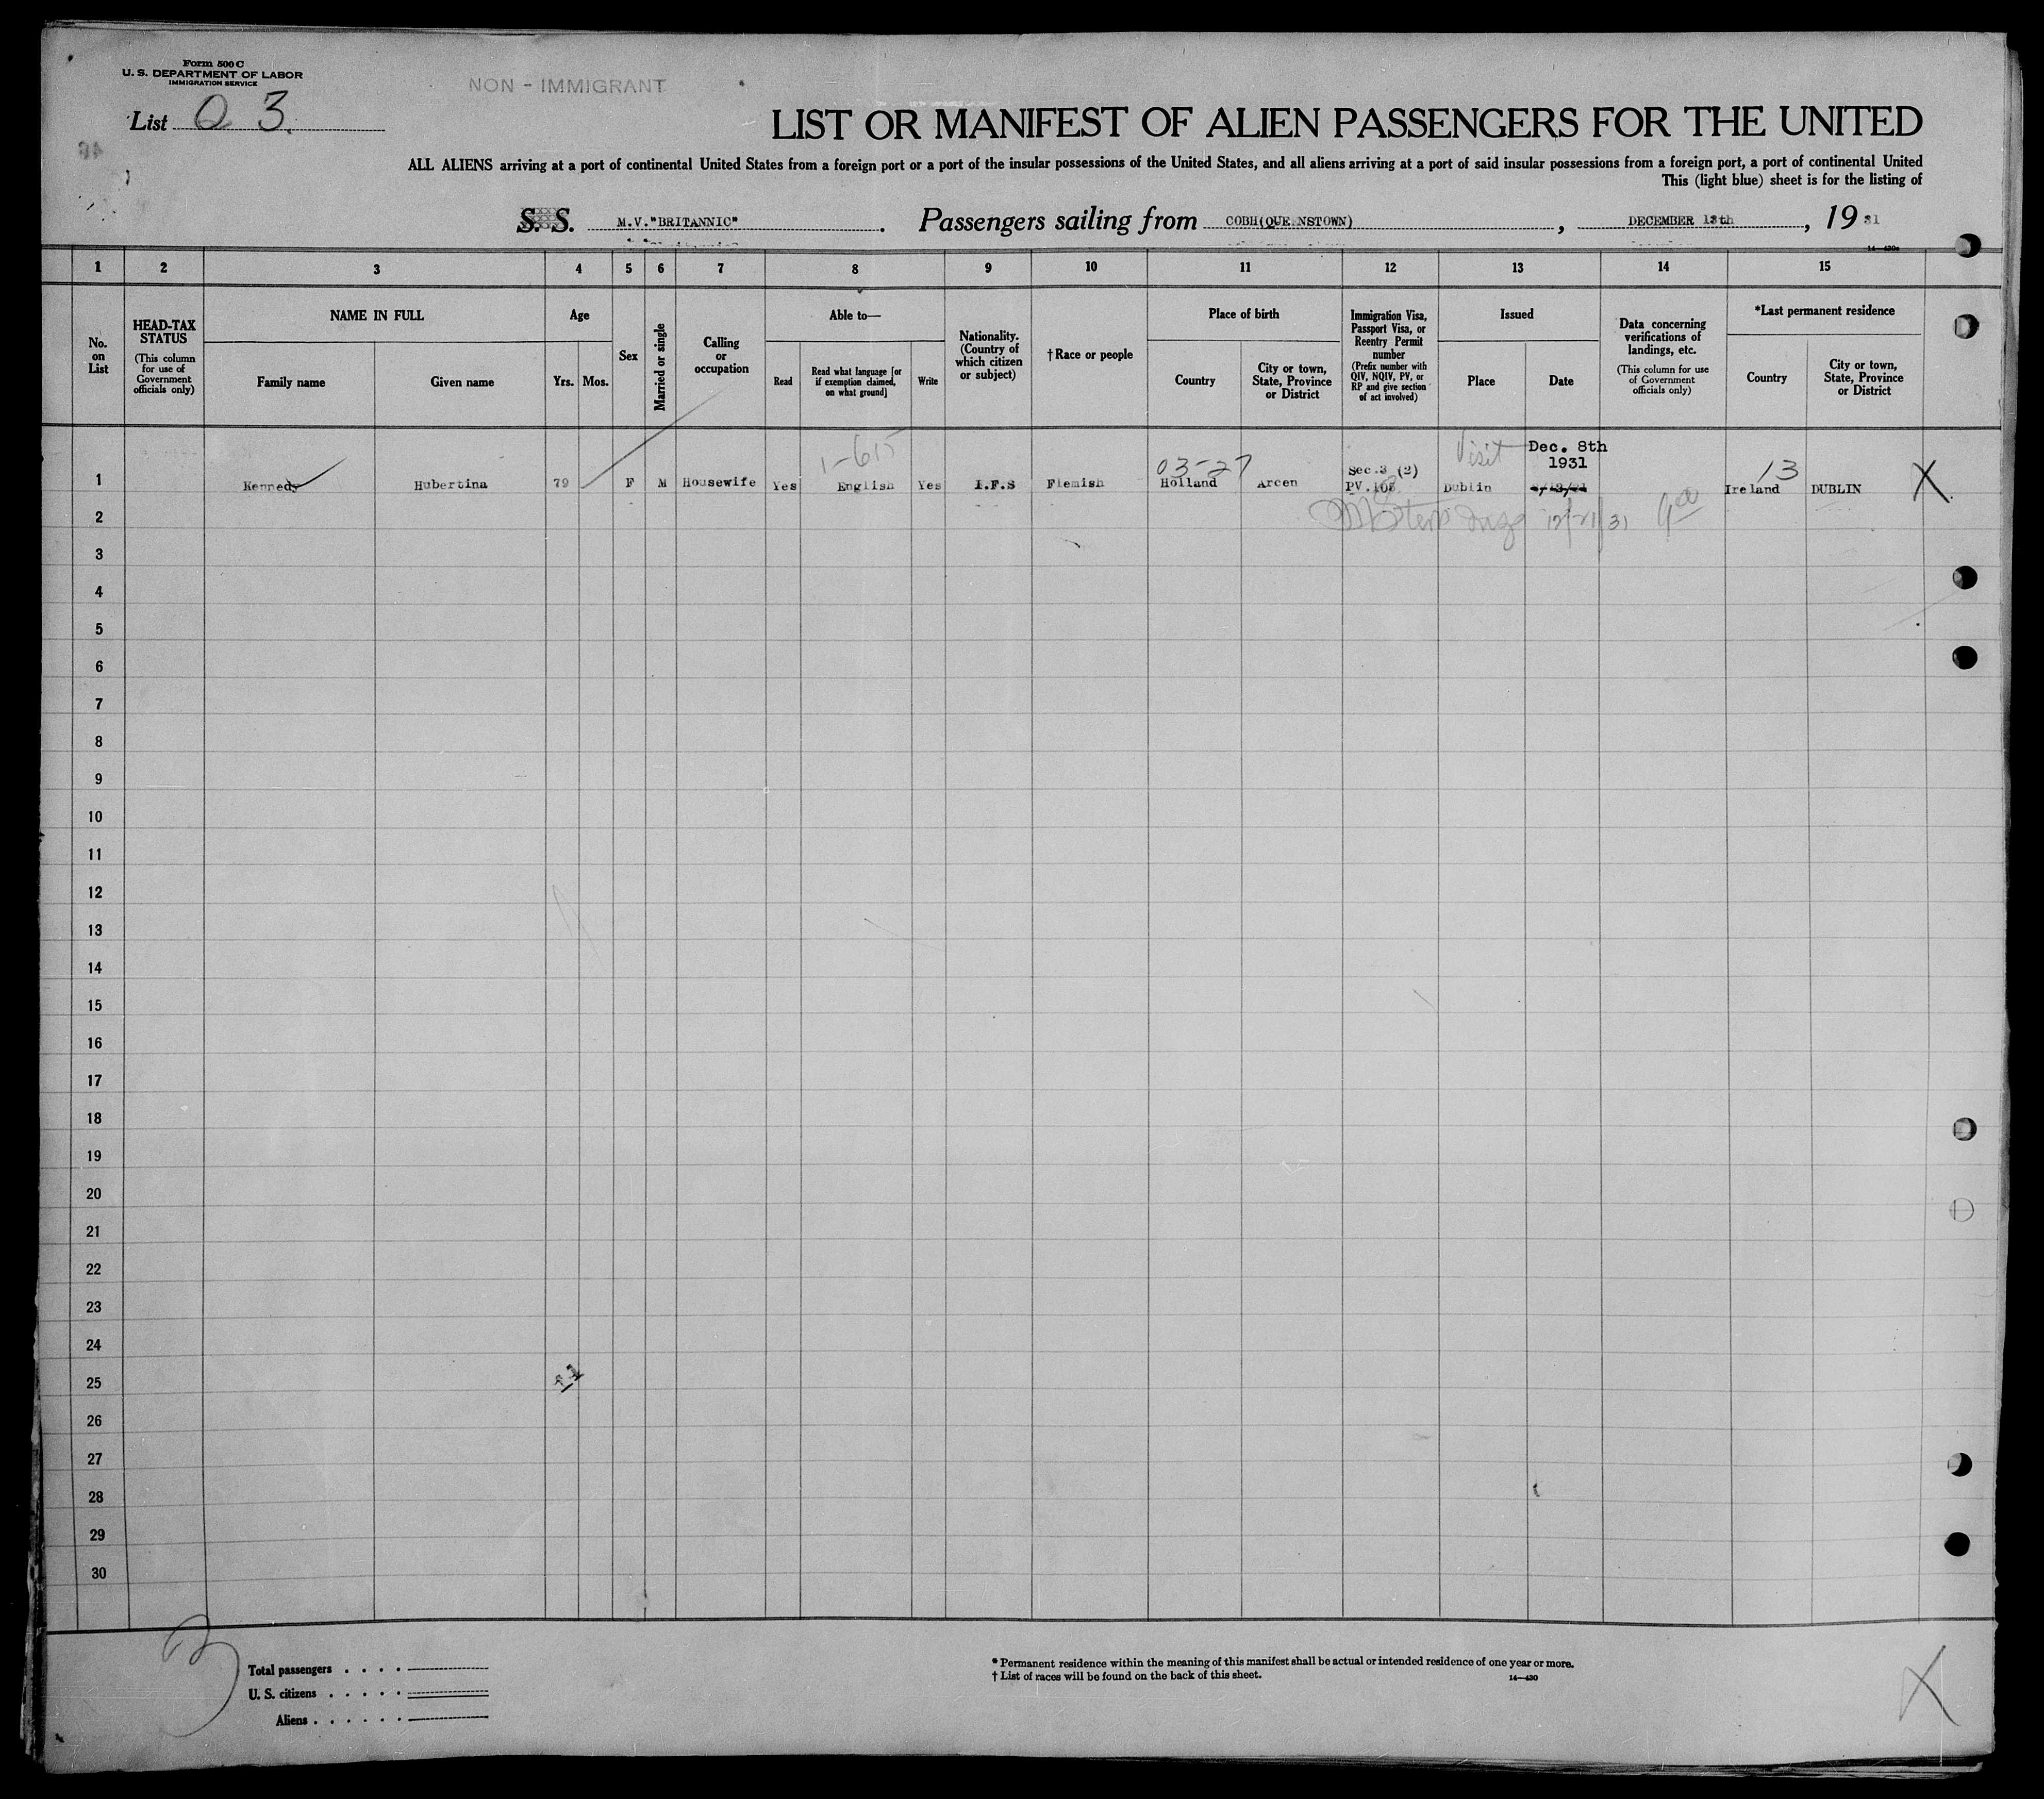 Form 500 C
U. S. DEPARTMENT OF LABOR
IMMIGRATION SERVICE
NON - IMMIGRANT
List Q 3.
LIST OR MANIFEST OF ALIEN PASSENGERS FOR THE UNITED
ALL ALIENS arriving at a port of continental United States from a foreign port or a port of the insular possessions of the United States, and all aliens arriving at a port of said insular possessions from a foreign port, a port of continental United
This (light blue) sheet is for the listing of
S. S. M.V."BRITANNIC". Passengers sailing from COBH(QUEENSTOWN), DECEMBER 13th, 19 31
14—430a
1 2 3 4 5 6 7 8 9 10 11 12 13 14 15
No. on List
HEAD-TAX STATUS
(This column for use of Government officials only)
NAME IN FULL
Family name
Given name
Age
Yrs. Mos.
Sex
Married or single
Calling or occupation
Able to—
Read
Read what language [or if exemption claimed, on what ground]
Write
Nationality. (Country of which citizen or subject)
†Race or people
Place of birth
Country
City or town, State, Province or District
Immigration Visa, Passport Visa, or Reentry Permit number
(Prefix number with QIV, NQIV, PV, or RP and give section of act involved)
Issued
Place
Date
Data concerning verifications of landings, etc.
(This column for use of Government officials only)
*Last permanent residence
Country
City or town, State, Province or District
1-615
03-27
Visit
Dec. 8th
1931
13
Sec.3 (2)
1 Kennedy Hubertina 79 F M Housewife Yes English Yes I.F.S Flemish Holland Arcen PV.103 Dublin Ireland DUBLIN X
2
12/21/31
3
4
5
6
7
8
9
10
11
12
13
14
15
16
17
18
19
20
21
22
23
24
25
26
27
28
29
30
Total passengers
U. S. citizens
Aliens
* Permanent residence within the meaning of this manifest shall be actual or intended residence of one year or more.
† List of races will be found on the back of this sheet.
14—430
X